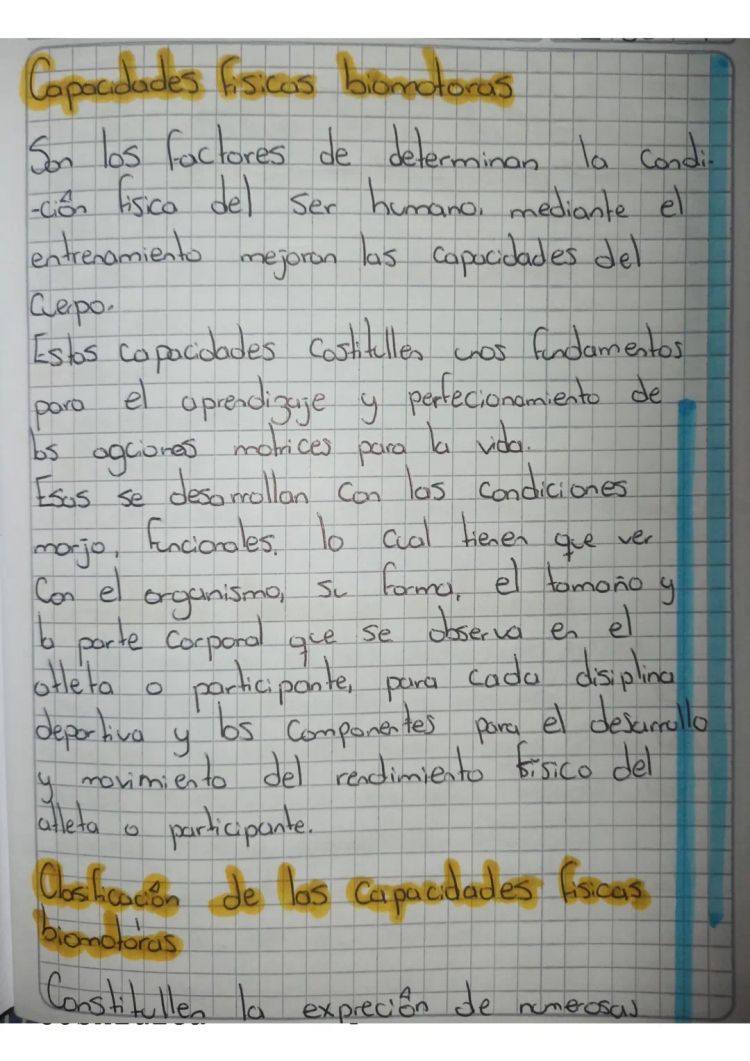 Capacidades físicas biomotoras
Son los factores de determinan la condi-
-ción física del ser humano, mediante el
entrenamiento mejoran las capacidades del
Cuerpo.
Estos capacidades Costitullen unos fundamentos
para el aprendizaje y perfecionamiento de
los agciones motrices para la vida.
Esas se desarrollan Con las Condiciones
morjo, funcionales, lo cual tienen que ver
Con el organismo, su forma, el tamaño y
la parte Corporal que se observa en el
atleta o participante, para cada disiplina
deportiva y los Componentes para el desarrollo
y movimiento del rendimiento físico del
atleta o participante.
Clasificación de las Capacidades físicas
biomotoras
Constitullen la expreción de numerosas